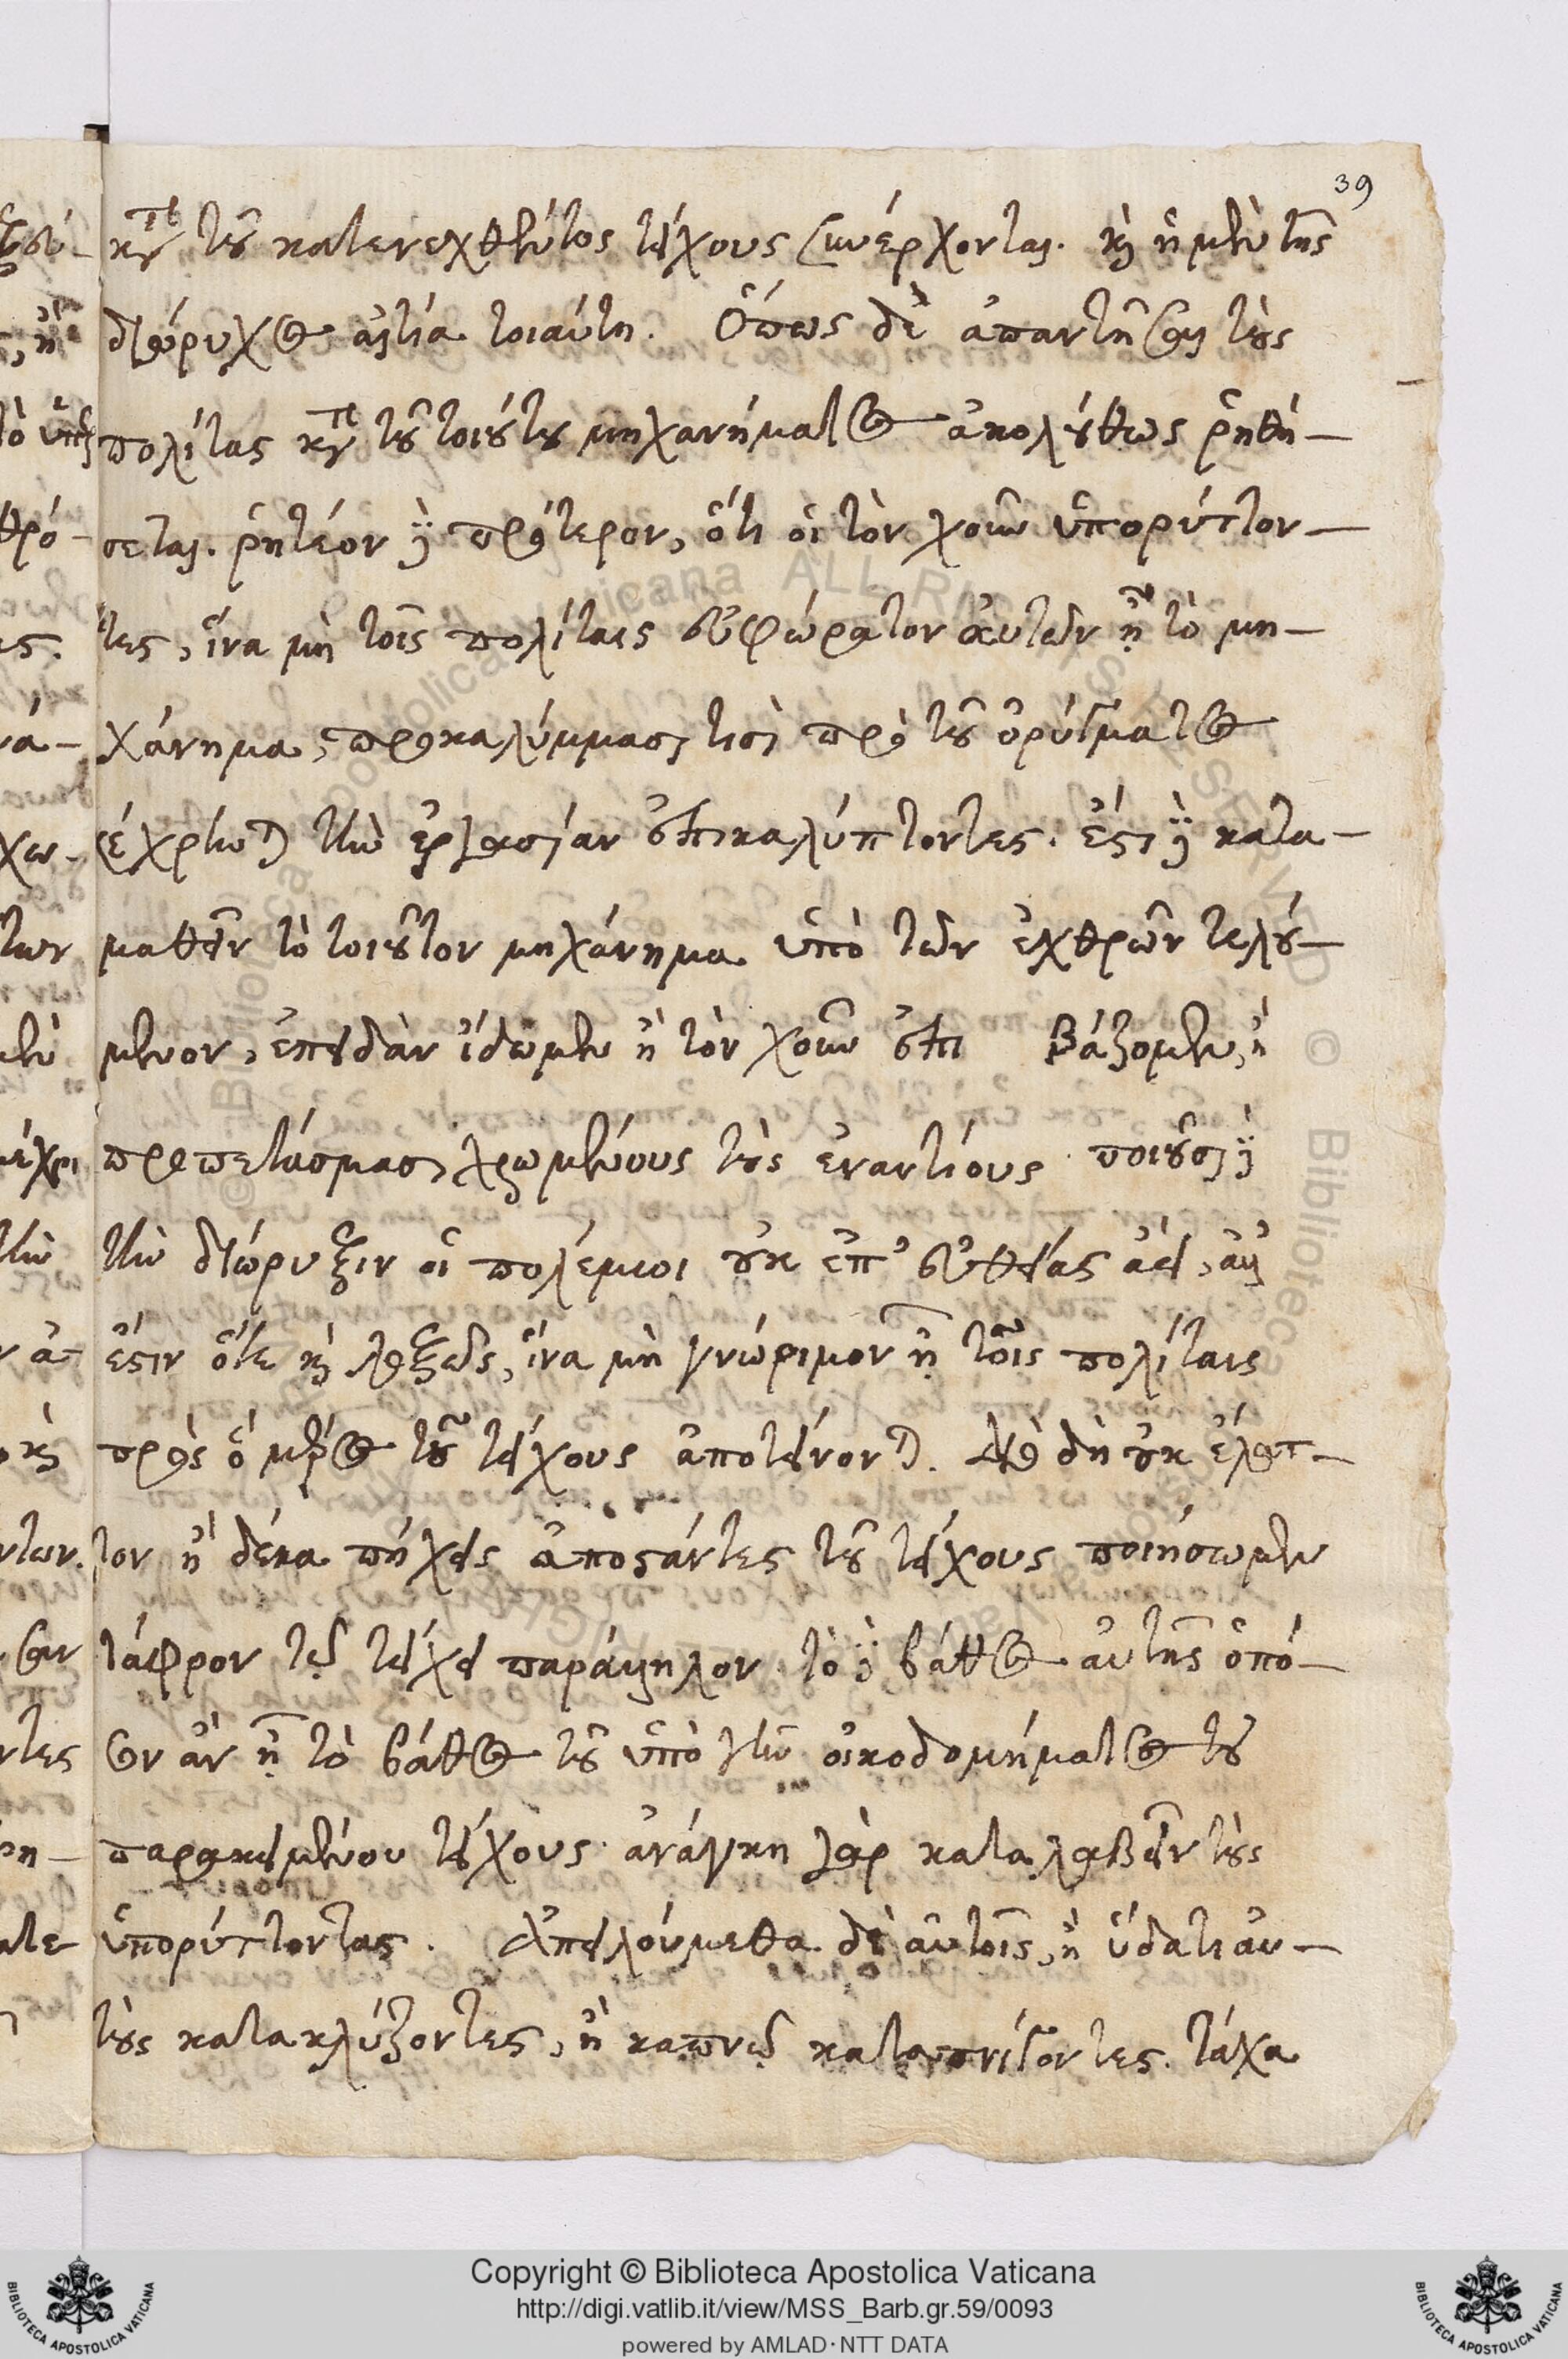 39
κατὰ τοῦ κατενεχθέντος τείχους συνέρχονται. καὶ ἡ μὲν τῆς
διώρυχος αἰτία τοιαύτη. Ὅπως δὲ ἀπαντῆσαι τοὺς
πολίτας κατὰ τοῦ τοιούτου μηχανήματος ἀκολούθως ῥηθή-
σεται. ῥητέον δὲ πρότερον, ὅτι οἱ τὸν χοῦν ὑπορύττον-
τες, ἵνα μὴ τοῖς πολίταις εὐφώρατον αὐτῶν ᾖ τὸ μη-
χάνημα, προκαλύμμασι τισὶ πρὸ τοῦ ὀρύγματος
ἐχρῶντο τὴν ἐργασίαν ἐπικαλύπτοντες. ἔστι δὲ κατα-
μαθεῖν τὸ τοιοῦτον μηχάνημα ὑπὸ τῶν ἐχθρῶν τελού-
μενον, ἐπειδὰν ἴδωμεν ἢ τὸν χοῦν ἐπι βάζομεν, ἢ
προπετάσμασι χρωμένους τοὺς ἐναντίους. ποιοῦσι δὲ
τὴν διώρυξιν οἱ πολέμιοι οὐκ ἐπ' εὐθείας ἀεὶ, ἀλλ'
ἔστιν ὅτε καὶ λοξῶς, ἵνα μὴ γνώριμον ᾖ τοῖς πολίταις
πρὸς ὃ μέρος τοῦ τείχους ἀποτείνονται. διὸ δὴ οὐκ ἔλατ-
τον ἢ δέκα πήχεις ἀποστάντες τοῦ τείχους ποιήσωμεν
τάφρον τῷ τείχει παράλληλον. τὸ δὲ βάθος αὐτῆς ὁπό-
σον ἂν ᾖ τὸ βάθος τοῦ ὑπὸ γῆν οἰκοδομήματος τοῦ
παρακειμένου τείχους. ἀνάγκη γὰρ καταλαβεῖν τοὺς
ὑπορύττοντας. Ἀπειλούμεθα δὲ αὐτοῖς, ἢ ὕδατι αὐ-
τοὺς κατακλύζοντες, ἢ καπνῷ καταπνίγοντες. τάχα
Copyright © Biblioteca Apostolica Vaticana
http://digi.vatlib.it/view/MSS_Barb.gr.59/0093
powered by AMLAD·NTT DATA